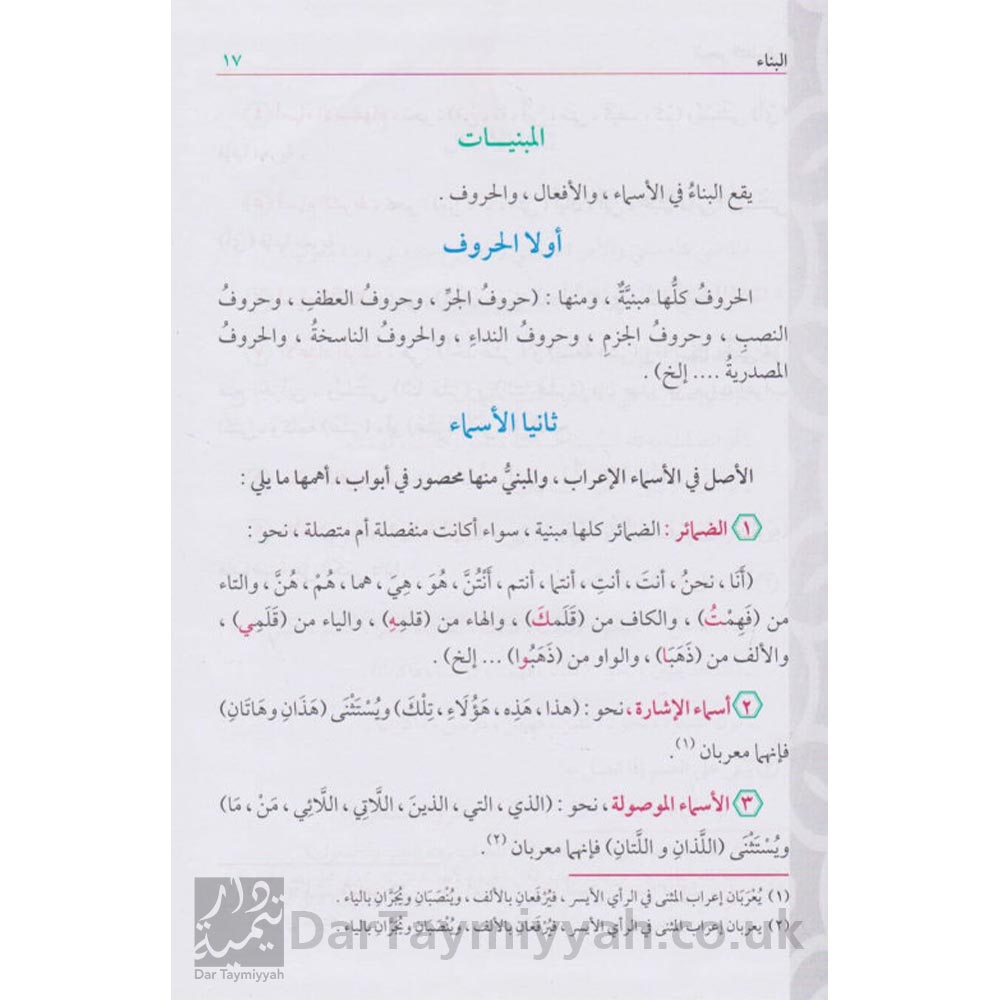 البناء ١٧
المبنيـــات
يقع البناءُ في الأسماء ، والأفعال ، والحروف .
أولا الحروف
الحروفُ كلُّها مبنيَّةٌ ، ومنها : (حروفُ الجرِّ ، وحروفُ العطفِ ، وحروفُ
النصبِ ، وحروفُ الجزمِ ، وحروفُ النداءِ ، والحروفُ الناسخةُ ، والحروفُ
المصدريةُ .... إلخ) .
ثانيا الأسماء
الأصل في الأسماء الإعراب ، والمبنيُّ منها محصور في أبواب ، أهمها ما يلي :
١ الضمائر : الضمائر كلها مبنية ، سواء أكانت منفصلة أم متصلة ، نحو :
(أَنَا ، نحنُ ، أنتَ ، أنتِ ، أنتما ، أنتم ، أَنْتُنَّ ، هُوَ ، هِيَ ، هما ، هُمْ ، هُنَّ ، والتاء
من (فَهِمْتُ) ، والكاف من (قَلَمكَ) ، والهاء من (قلمِهِ) ، والياء من (قَلَمِي) ،
والألف من (ذَهَبَا) ، والواو من (ذَهَبُوا) ... إلخ) .
٢ أسماء الإشارة ، نحو : (هذا ، هَذِه ، هَؤُلَاءِ ، تِلْكَ) ويُسْتَثْنَى (هَذَانِ وهَاتَانِ)
فإنهما معربان (١).
٣ الأسماء الموصولة ، نحو : (الذي ، التي ، الذينَ ، اللَّاتِي ، اللَّائِي ، مَنْ ، مَا)
ويُسْتَثْنَى (اللَّذانِ و اللَّتانِ) فإنهما معربان (٢).
(١) يُعْرَبَان إعراب المثنى في الرأي الأيسر ، فيُرْفَعانِ بالألف ، ويُنْصَبَانِ ويُجَرَّانِ بالياء .
(٢) يعربان إعراب المثنى في الرأي الأيسر ، فيُرْفَعانِ بالألف ، ويُنْصَبَانِ ويُجَرَّانِ بالياء .
دار تيمية
Dar Taymiyyah
DarTaymiyyah.co.uk